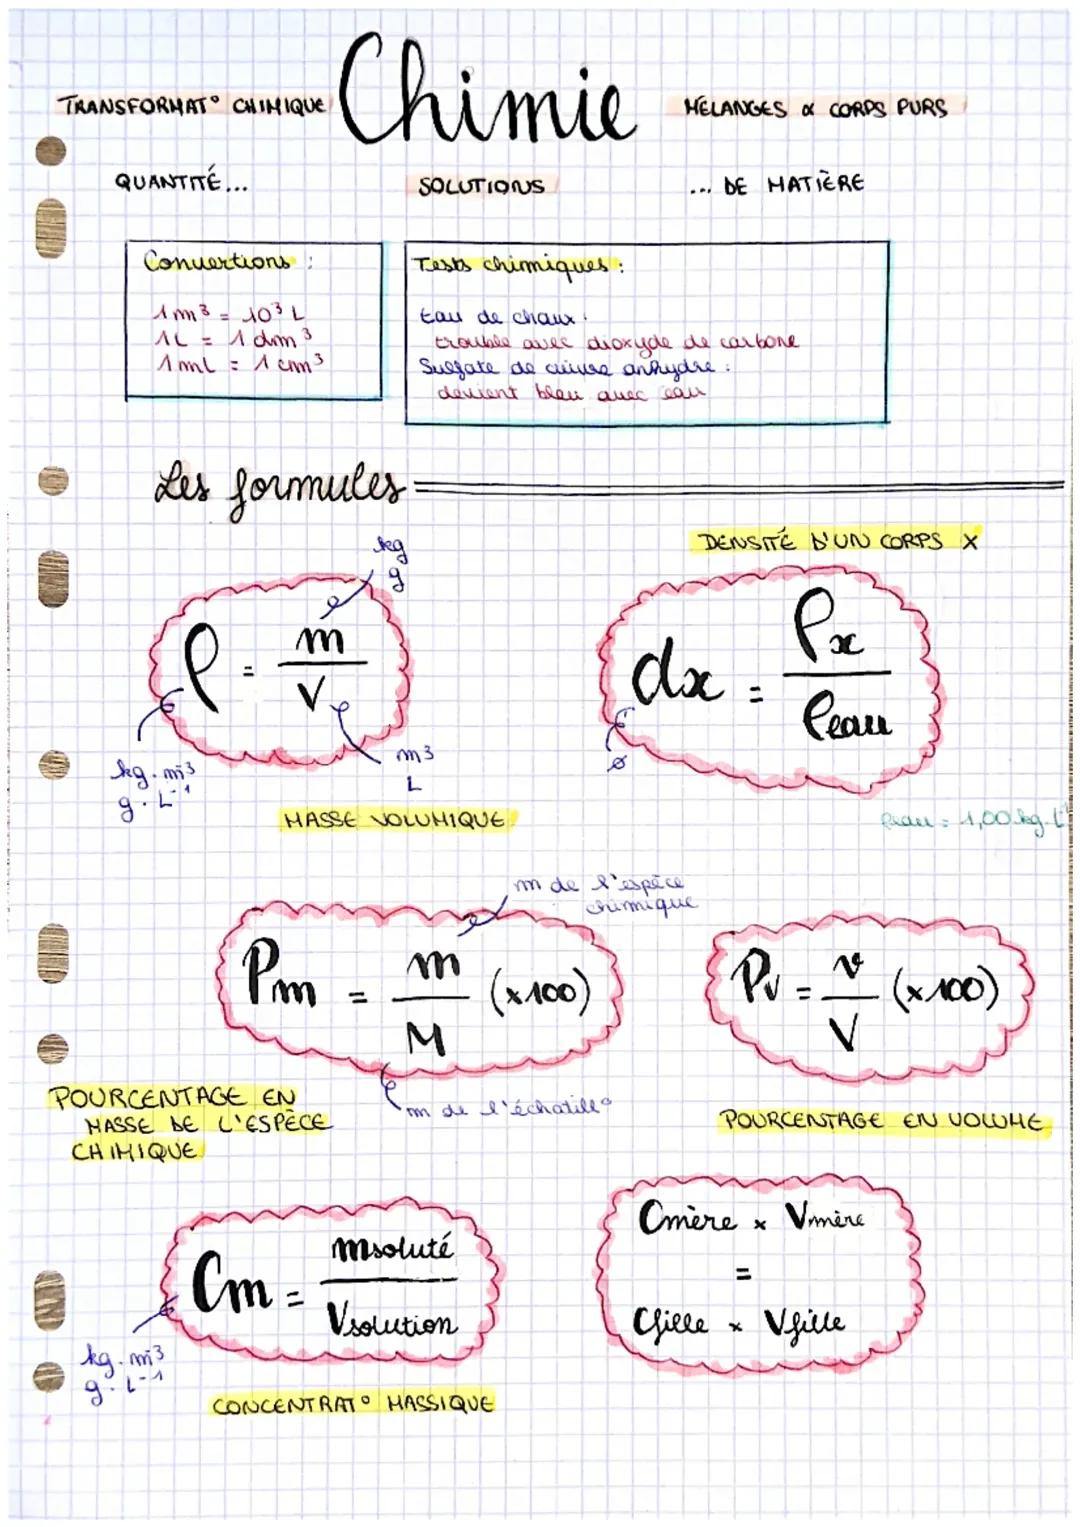 Chimie
TRANSFORMAT° CHIMIQUE
MELANGES & CORPS PURS
QUANTITÉ...
SOLUTIONS
... DE MATIÈRE
Convertions :
1 m³ = 10³ L
1L = 1 dm³
1 mL = 1 cm³
Tests chimiques :
Eau de chaux :
trouble avec dioxyde de carbone
Sulfate de cuivre anhydre :
devient bleu avec eau
Les formules
kg
g
ρ = m / V
kg.m⁻³
g.L⁻¹
m³
L
MASSE VOLUMIQUE
DENSITÉ D'UN CORPS X
dx = ρx / ρeau
ø
ρeau = 1,00 kg.L⁻¹
m de l'espèce
chimique
Pm = m / M (×100)
m de l'échatill°
POURCENTAGE EN
MASSE DE L'ESPÈCE
CHIMIQUE
Pv = v / V (×100)
POURCENTAGE EN VOLUME
Cm = msoluté / Vsolution
kg.m⁻³
g.L⁻¹
CONCENTRAT° MASSIQUE
Cmère × Vmère
=
Cfille × Vfille